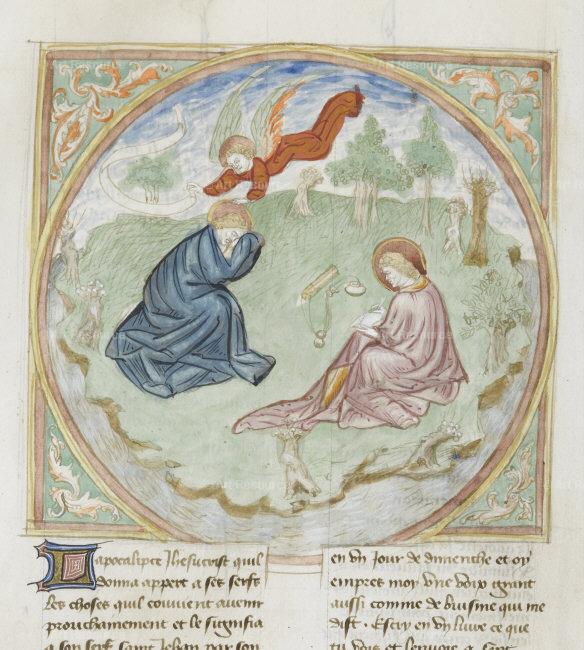 La apocalipce Jhesucrist quil
donna appere a ses serfs
Les choses quil couvient avenir
prouchainement et le signifia
a son serf saint Jehan par son
en vn Jour de dimenche et oy
empres moy vne voix grant
aussi comme de buisine qui me
dist . Escry en vn livre ce que
tu vois et lenvoie a sept